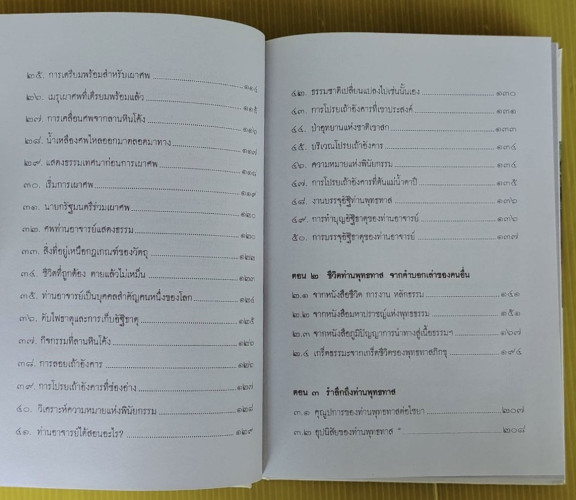 ๒๕. การเตรียมพร้อมสำหรับเผาศพ ๑๑๔
๒๖. เมรุเผาศพที่เตรียมพร้อมแล้ว ๑๑๕
๒๗. การเคลื่อนศพจากลานหินโค้ง ๑๑๖
๒๘. น้ำเหลืองศพไหลออกมาตลอดมาทาง ๑๑๗
๒๙. แสดงธรรมเทศนาก่อนการเผาศพ ๑๑๘
๓๐. เริ่มการเผาศพ ๑๑๙
๓๑. นายกรัฐมนตรีร่วมเผาศพ ๑๒๐
๓๒. ศพท่านอาจารย์แสดงธรรม ๑๒๐
๓๓. สิ่งที่อยู่เหนือกฎเกณฑ์ของวัตถุ
๓๔. ชีวิตที่ถูกต้อง ตายแล้วไม่เหม็น
๓๕. ท่านอาจารย์เป็นบุคคลสำคัญคนหนึ่งของโลก
๓๖. ดับไฟธาตุและการเก็บอัฐิธาตุ
๓๗. กิจกรรมที่ลานหินโค้ง ๑๒๖
๓๘. การลอยเถ้าอังคาร ๑๒๖
๓๙. การโปรยเถ้าอังคารที่ช่องอ่าง ๑๒๗
๔๐. วิเคราะห์ความหมายแห่งพินัยกรรม ๑๒๘
๔๑. ท่านอาจารย์ได้สอนอะไร? ๑๒๙
๔๒. ธรรมชาติเปลี่ยนแปลงไปเช่นนั้นเอง ๑๓๐
๔๓. การโปรยเถ้าอังคารที่เขาประสงค์ ๑๓๑
๔๔. ป่าอุทยานแห่งชาติเขาสก ๑๓๓
๔๕. บริเวณโปรยเถ้าอังคาร ๑๓๔
๔๖. ความหมายแห่งพินัยกรรม ๑๓๔
๔๗. การโปรยเถ้าอังคารที่ต้นแม่น้ำตาปี ๑๓๕
๔๘. งานบรรจุอัฐิท่านพุทธทาส ๑๓๖
๔๙. การทำบุญอัฐิธาตุของท่านอาจารย์ ๑๓๖
๕๐. การบรรจุอัฐิธาตุของท่านอาจารย์ ๑๓๗
ตอน ๒ ชีวิตท่านพุทธทาส จากคำบอกเล่าของคนอื่น
๒.๑ จากหนังสือชีวิต การงาน หลักธรรม ๑๔๑
๒.๒ จากหนังสือมหาปราชญ์แห่งพุทธธรรม ๑๕๑
๒.๓ จากหนังสือภูมิปัญญาการนำทางสู่เนื้อธรรมฯ ๑๖๗
๒.๔ เกร็ดธรรมะจากเกร็ดชีวิตของพุทธทาสภิกขุ ๑๙๔
ตอน ๓ รำลึกถึงท่านพุทธทาส
๓.๑ คุณูปการของท่านพุทธทาสต่อไชยา ๒๐๗
๓.๒ อุปนิสัยของท่านพุทธทาส ๒๐๘